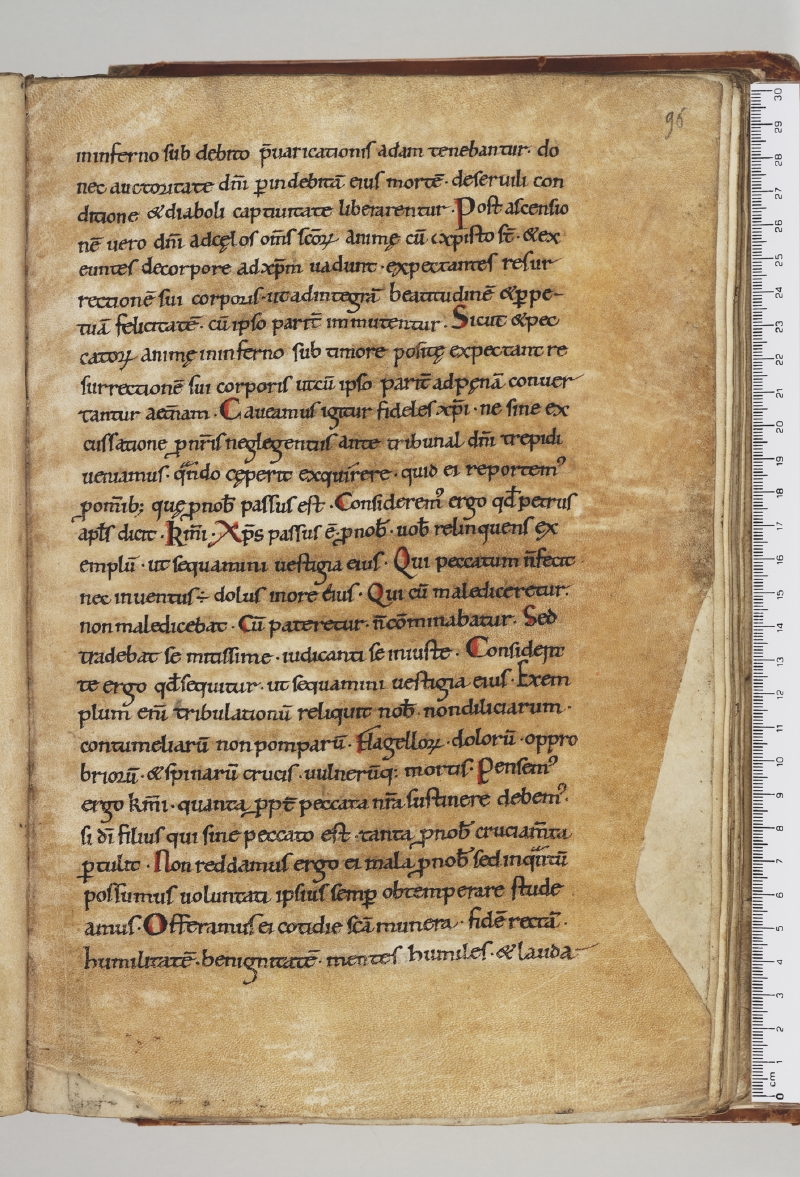 96
ininferno sub debito p̄uaricationis adam tenebantur. do
nec auctoritate dn̄i ꝑindebitā eius mortē. deseruili con
ditione &diaboli captiuitate liberarentur. Post ascensio
nē uero dn̄i adcęlos om̄s scōꝝ animę cū cxpisto st̄. &ex
euntes decorpore adxp̄m uadunt. expectantes resur
rectionē sui corporis. utadintegrā beatitudinē &ꝑpe-
tuā felicitatē. cū ipso parit̄ inmutentur. Sicut &pec
catoꝝ animę ininferno sub timore positę expectant re
surrectionē sui corporis utcū ipso parit̄ adpęnā conuer
tantur aet̄nam. Caueamus igitur fideles xp̄i. ne sine ex
cussatione ꝑ nr̄is neglegentiis ante tribunal dn̄i trepidi
ueniamus. qn̄do cęperit exquirere. quid ei reportemꝰ
ꝓom̄ib; quę ꝓnob̄ passus est. Consideremꝰ ergo qd̄ petrus
apl̄s dicit. kr̄mi. Xp̄s passus ē ꝓnob̄. uob̄ relinquens ex
emplū. ut sequamini uestigia eius. Qui peccatum n̄fecit
nec inuentus÷ dolus inore eius. Qui cū malediceretur.
non maledicebat. Cū pateretur. n̄ cōminabatur. Sed
tradebat se mitissime. iudicanti se iniuste. Considera
te ergo qd̄ sequitur. ut sequamini uestigia eius. Exem
plum eni tribulationū reliquit nob̄. nondiliciarum.
contumeliarū non pomparū. Flagelloꝝ. dolorū. oppro
briorū. &spinarū crucis. uulnerūq: mortis. Pensemꝰ
ergo kr̄mi. quanta ꝓpt̄ peccata nr̄a sustinere debemꝰ.
si dī filius qui sine peccato est. tanta ꝓnob̄ cruciam̄ta
ꝑtulit. Non reddamus ergo ei mala ꝓnob̄ sed inqn̄tū
possumus uoluntati ipsius semꝑ obtemperare stude
amus. Offeramus ei cotidie scā munera. fidē rectā.
humilitatē. benignitatē. mentes humiles. &lauda-